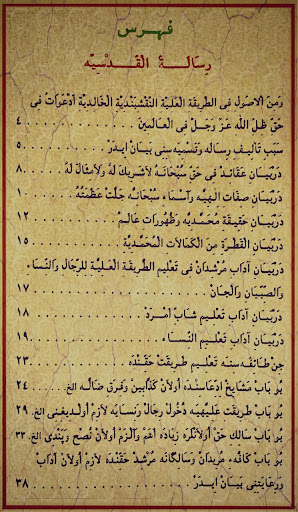 فهرس
رسالة القدسيه
ومن الاصول فى الطريقة العلية النقشبندية الخالدية ادعوات فى
حق ظل الله عز وجل فى العالمين ٤
سبب تأليف رساله وتسميه سنى بيان ايدر ٥
در بيان عقائد فى حق سبحانه لاشريك له ولامثال له ٨
در بيان صفات الهيه واسماء سبحانه جلت عظمته ١٠
در بيان حقيقة محمديه وظهورات عالم ١٢
در بيان القطرة من الكمالات المحمدية ١٥
در بيان آداب مرشدان فى تعليم الطريقة العلية للرجال والنساء
والصبيان والجان ١٧
در بيان آداب تعليم شاب امرد ١٨
در بيان آداب تعليم النساء ١٩
جن طائفه سنه تعليم طريقت حقنده ٢٣
بو باب مشايخ ادعاسنده اولان كذابين وفرق ضاله الخ ٢٤
بو باب طريقت عليهيه دخول رجال ونسايه لازم اولديغنى الخ. ٢٩
بو باب سالك حق اولانلره زياده اهم والزم اولان نصح وپندى الخ. ٣٣
بو باب كافه مريدان وسالكانه مرشد حقنده لازم اولان آداب
ورعايتنى بيان ايدر ٣٨